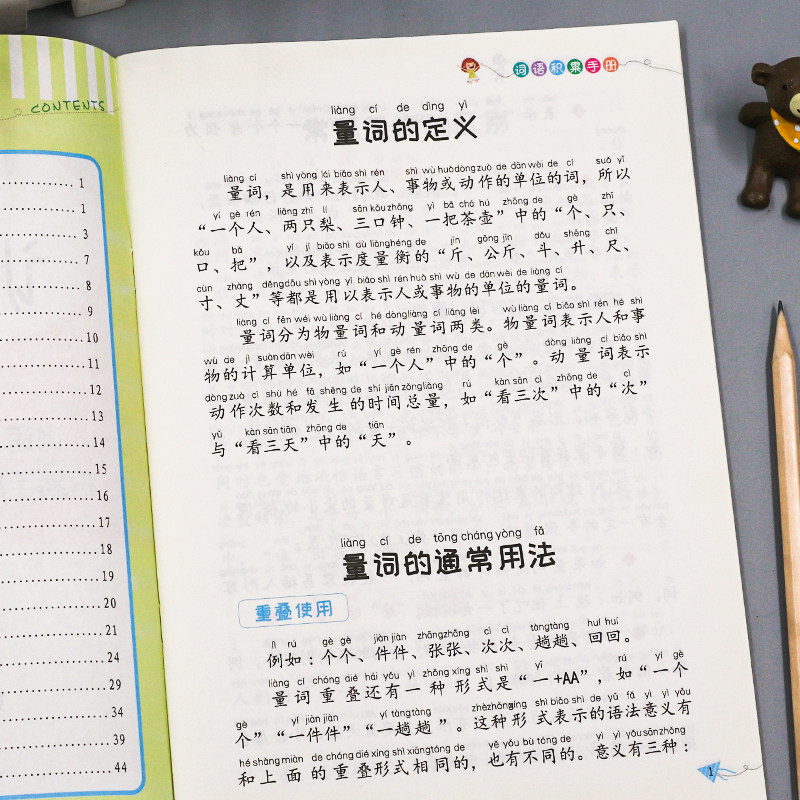 CONTENTS
1
1
3
7
8
9
10
11
12
13
14
15
16
17
18
19
20
21
24
29
34
39
44
词语积累手册
liàng cí de dìng yì
量词的定义
liàng cí shì yòng lái biǎo shì rén shì wù huò dòng zuò de dān wèi de cí suǒ yǐ
量词，是用来表示人、事物或动作的单位的词，所以
yí gè rén liǎng zhī lí sān kǒu zhōng yì bǎ chá hú zhōng de gè zhī
“一个人、两只梨、三口钟、一把茶壶”中的“个、只、
kǒu bǎ yǐ jí biǎo shì dù liàng héng de jīn gōng jīn dǒu shēng chǐ
口、把”，以及表示度量衡的“斤、公斤、斗、升、尺、
cùn zhàng děng dōu shì yòng yǐ biǎo shì rén huò shì wù de dān wèi de liàng cí
寸、丈”等都是用以表示人或事物的单位的量词。
liàng cí fēn wéi wù liàng cí hé dòng liàng cí liǎng lèi wù liàng cí biǎo shì rén hé shì
量词分为物量词和动量词两类。物量词表示人和事
wù de jì suàn dān wèi rú yí gè rén zhōng de gè dòng liàng cí biǎo shì
物的计算单位，如“一个人”中的“个”。动量词表示
dòng zuò cì shù hé fā shēng de shí jiān zǒng liàng rú kàn sān cì zhōng de cì
动作次数和发生的时间总量，如“看三次”中的“次”
yǔ kàn sān tiān zhōng de tiān
与“看三天”中的“天”。
liàng cí de tōng cháng yòng fǎ
量词的通常用法
重叠使用
lì rú gè gè jiàn jiàn zhāng zhāng cì cì tàng tàng huí huí
例如：个个、件件、张张、次次、趟趟、回回。
liàng cí chóng dié hái yǒu yì zhǒng xíng shì shì yī rú yí gè
量词重叠还有一种形式是“一+AA”，如“一个
gè yí jiàn jiàn yí tàng tàng zhè zhǒng xíng shì biǎo shì de yǔ fǎ yì yì yǒu
个”“一件件”“一趟趟”。这种形式表示的语法意义有
hé shàng miàn de chóng dié xíng shì xiāng tóng de yě yǒu bù tóng de yì yì yǒu sān zhǒng
和上面的重叠形式相同的，也有不同的。意义有三种：
1